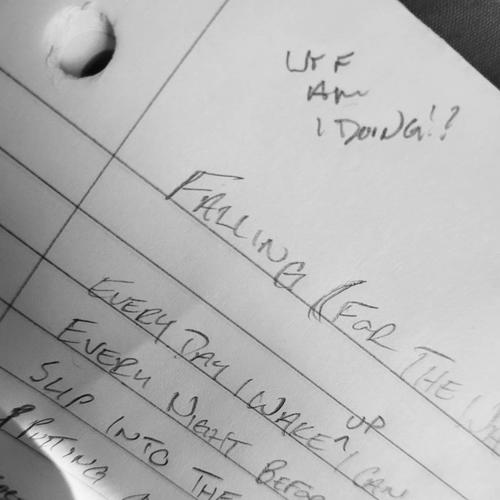 WTF
AM
I DOING!?
FALLING (FOR THE
EVERY DAY I WAKE UP I CAN
EVERY NIGHT BEFORE
SLIP INTO THE
PUTTING